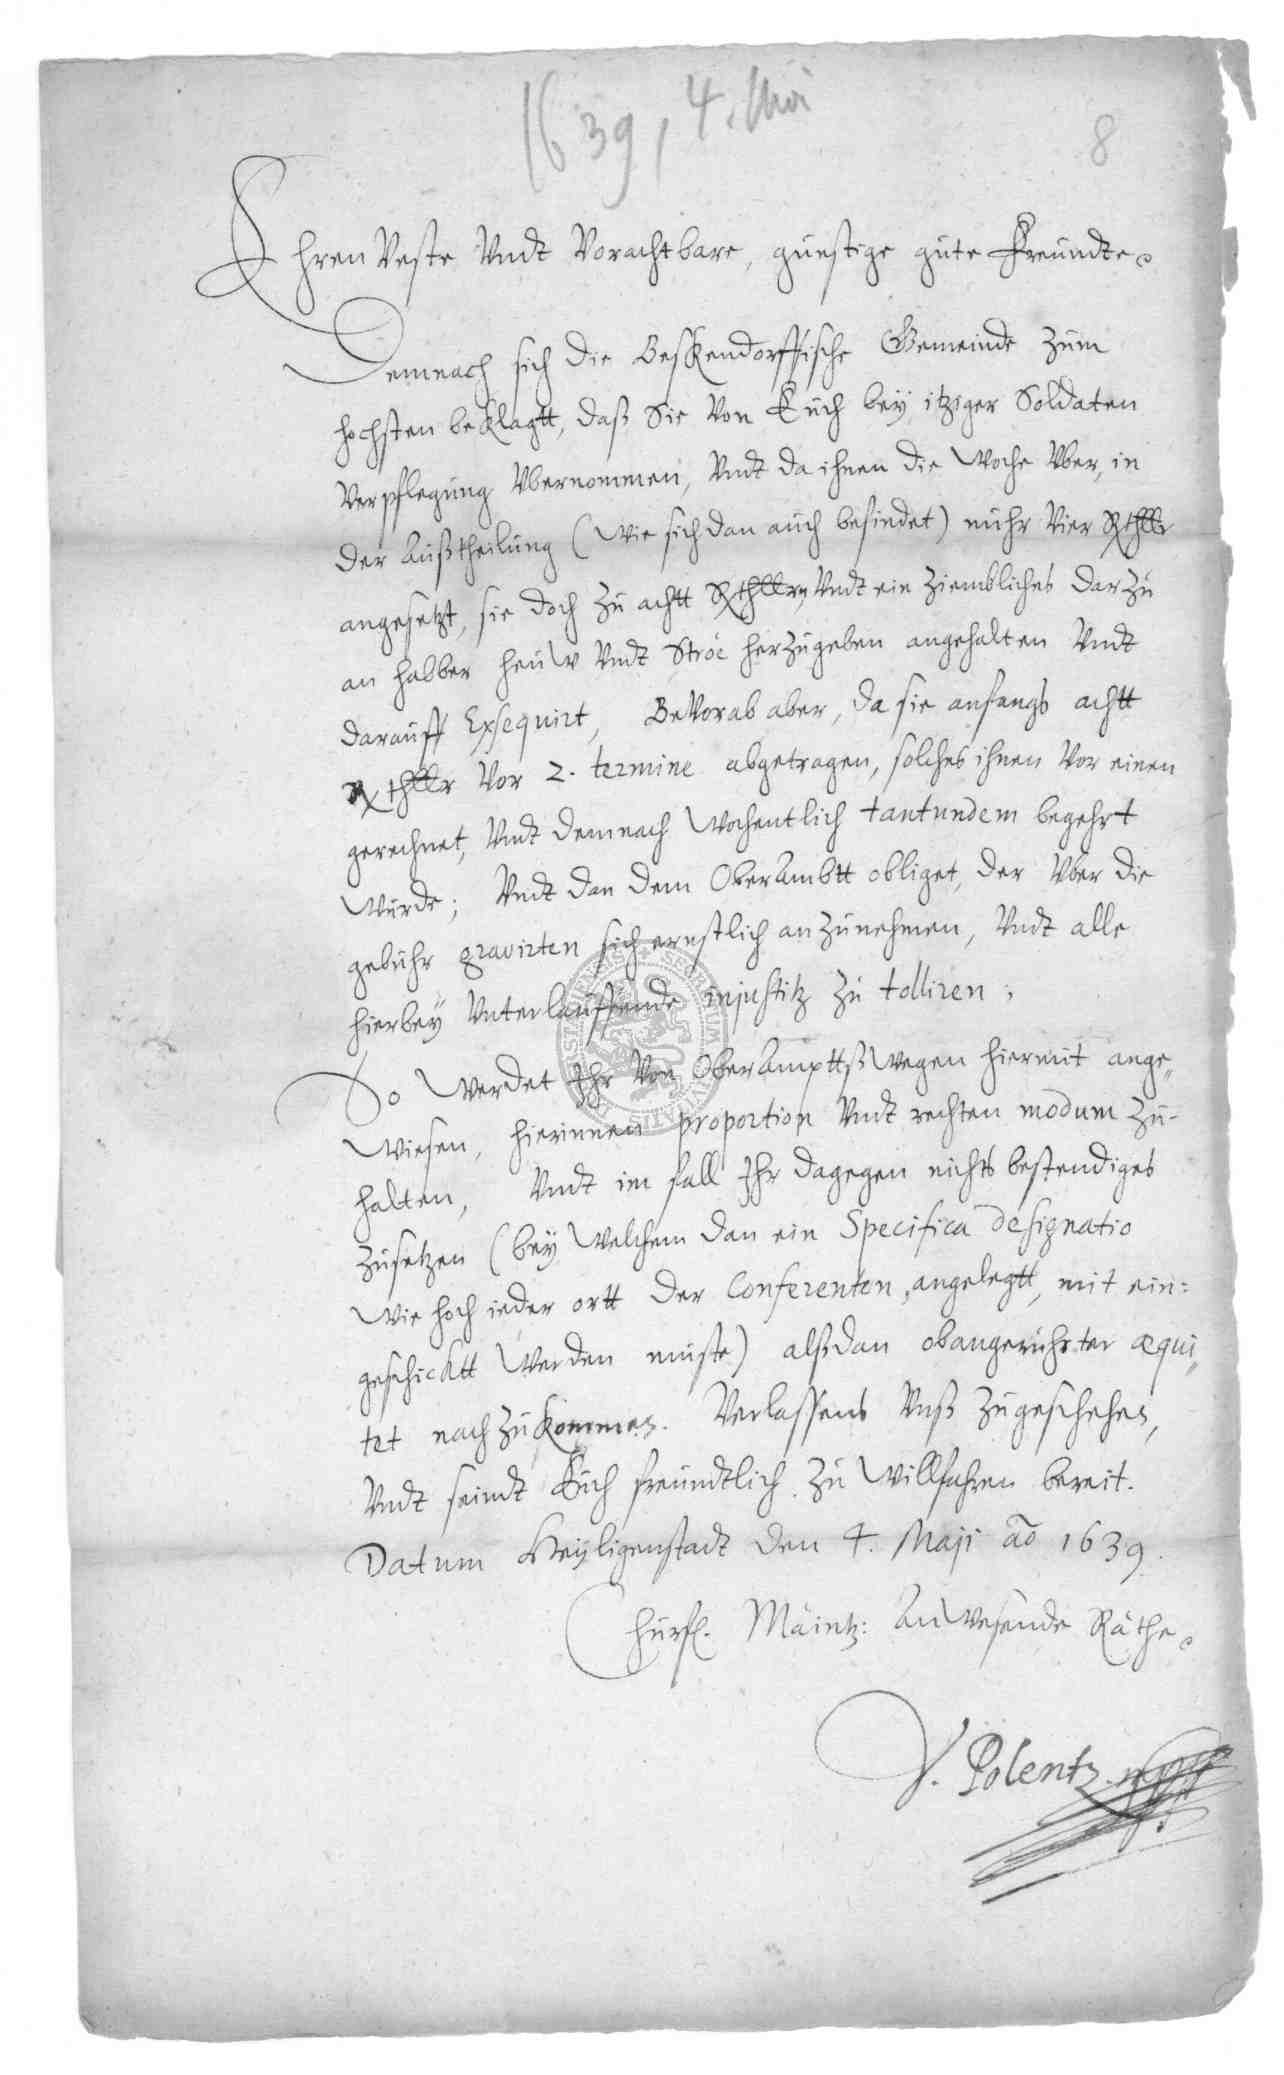 1639, 4. Mai
8
Ehren Veste Vndt Vorachtbare, günstige gute Freundte.
Demnach sich die Beskendorffische Gemeinde zum
hochsten beklagtt, daß Sie Von Euch bey itziger Soldaten
Verpflegung Vbernommen, Vndt da ihnen die Woche Vber, in
der Außtheilung (wie sich dan auch befindet) nuhr Vier Rthllr
angesetzt, sie doch zu achtt Rthllrn, Vndt ein ziembliches darzu
an habber heuw Vndt Stroe herzugeben angehalten Vndt
darauff Exsequirt, Bevorab aber, da sie anfangs achtt
Rthllr Vor 2. termine abgetragen, solches ihnen Vor einen
gerechnet, Vndt demnach Wochentlich tantundem begehrt
Würde; Vndt dan dem OberAmbtt obliget, der Vber die
gebuhr gravirten sich ernstlich anzunehmen, Vndt alle
hierbey Vnterlauffende injustitz zu tolliren;
So Werdet Ihr Von OberAmpttß Wegen hiermit ange„
Wiesen, hierinnen proportion Vndt rechten modum zu-
halten, Vndt im fall Ihr dagegen nichts bestendiges
zusetzen (bey Welchem dan ein Specifica designatio
Wie hoch ieder ortt der Conferenten, angelegtt, mit ein:
geschicktt Werden müste) alßdan obangeruhrter æqui„
tet nachzukommen. Verlassens Vnß zugeschehen,
Vndt seindt Euch freundtlich zu Willfahren bereit.
Datum Heyligenstadt den 4. Maji ao 1639.
Churfl. Mäintz: AnWesende Räthe.
V. Polentz mpp